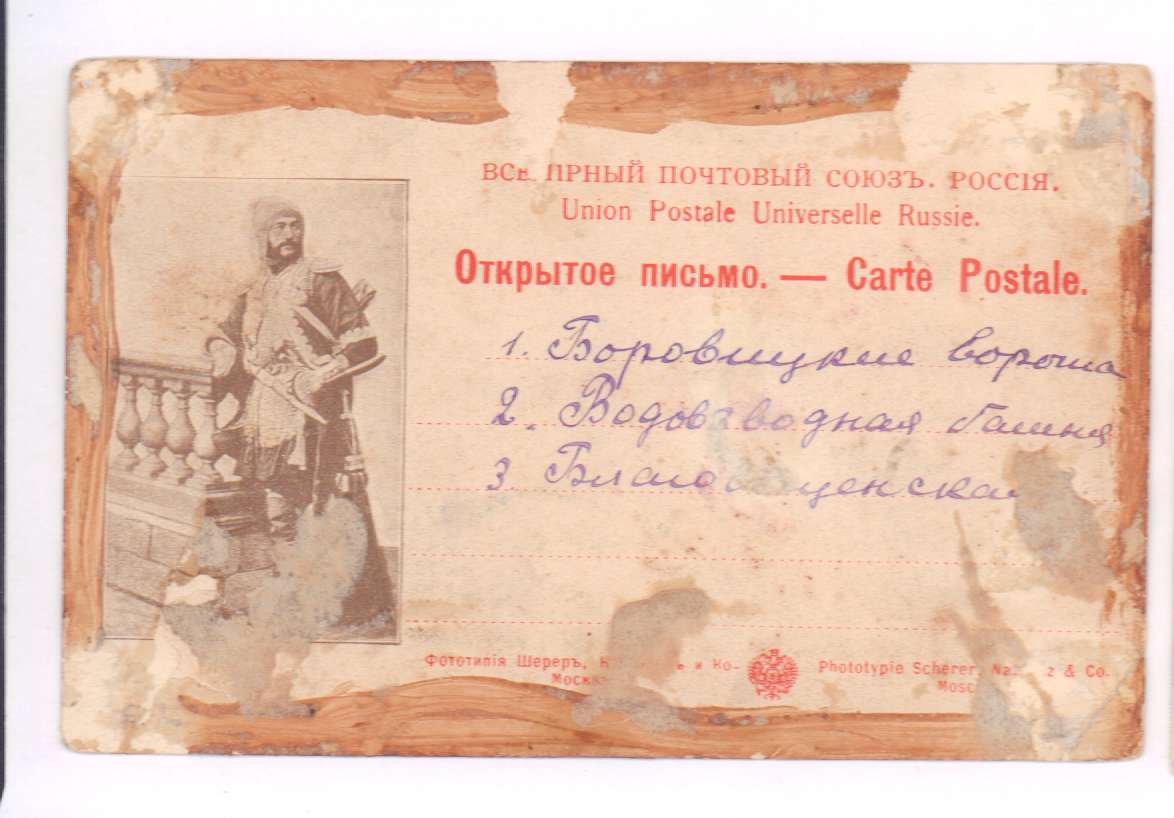 ПОЧТОВЫЙ СОЮЗЪ. РОССІЯ.
Union Postale Universelle Russie.
Открытое письмо. — Carte Postale.
1. Боровицкие ворота
2. Водовзводная башня
3
Фототипія Шереръ, и Ко-
Phototypie Scherer, & Co.